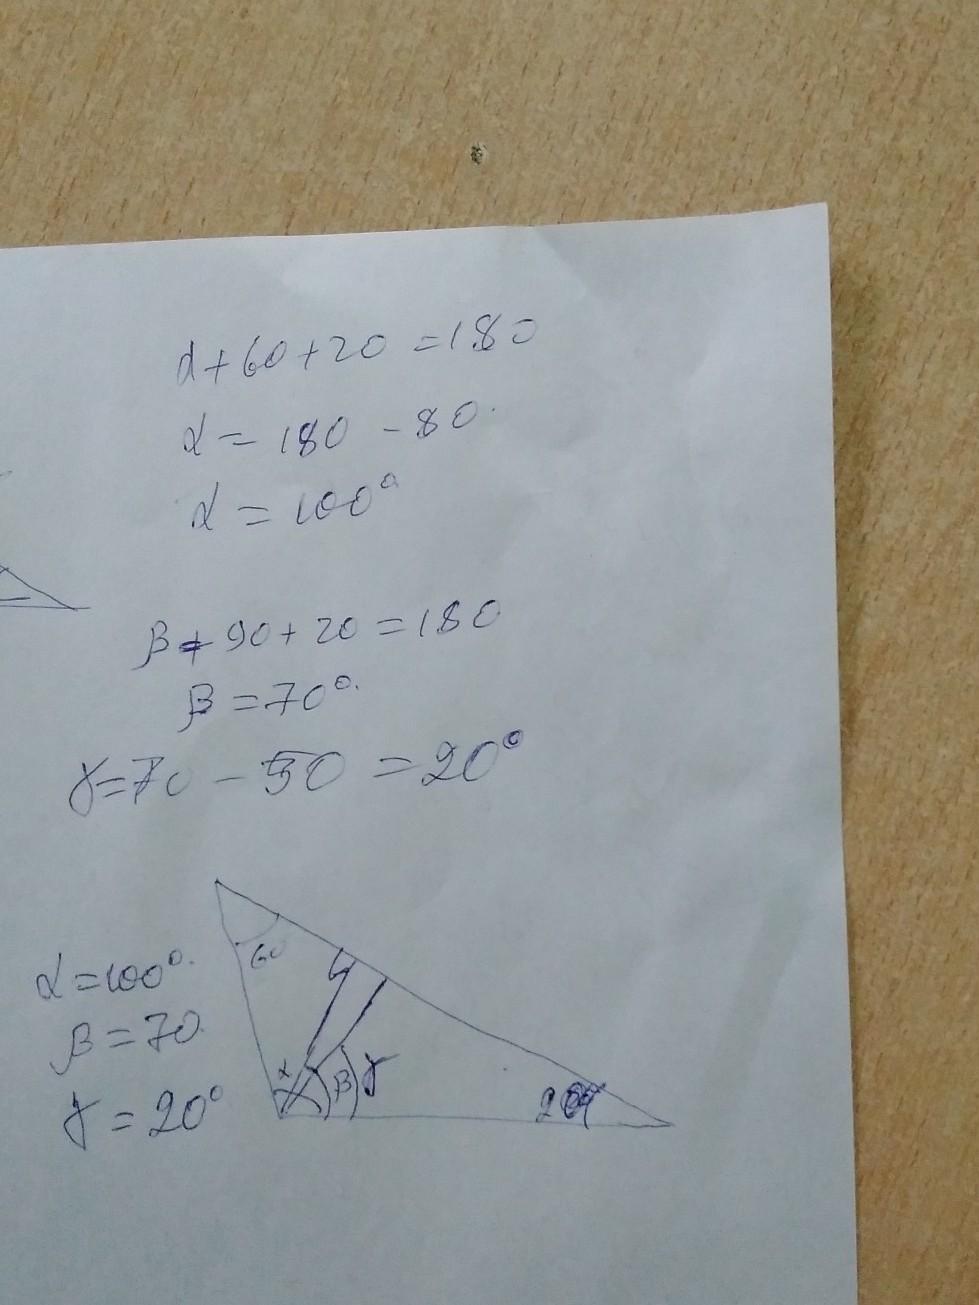 α+60+20=180
α=180-80.
α=100°
β+90+20=180
β=70°.
γ=70-50=20°
60
α=100°.
β=70.
γ=20°
α β γ
20